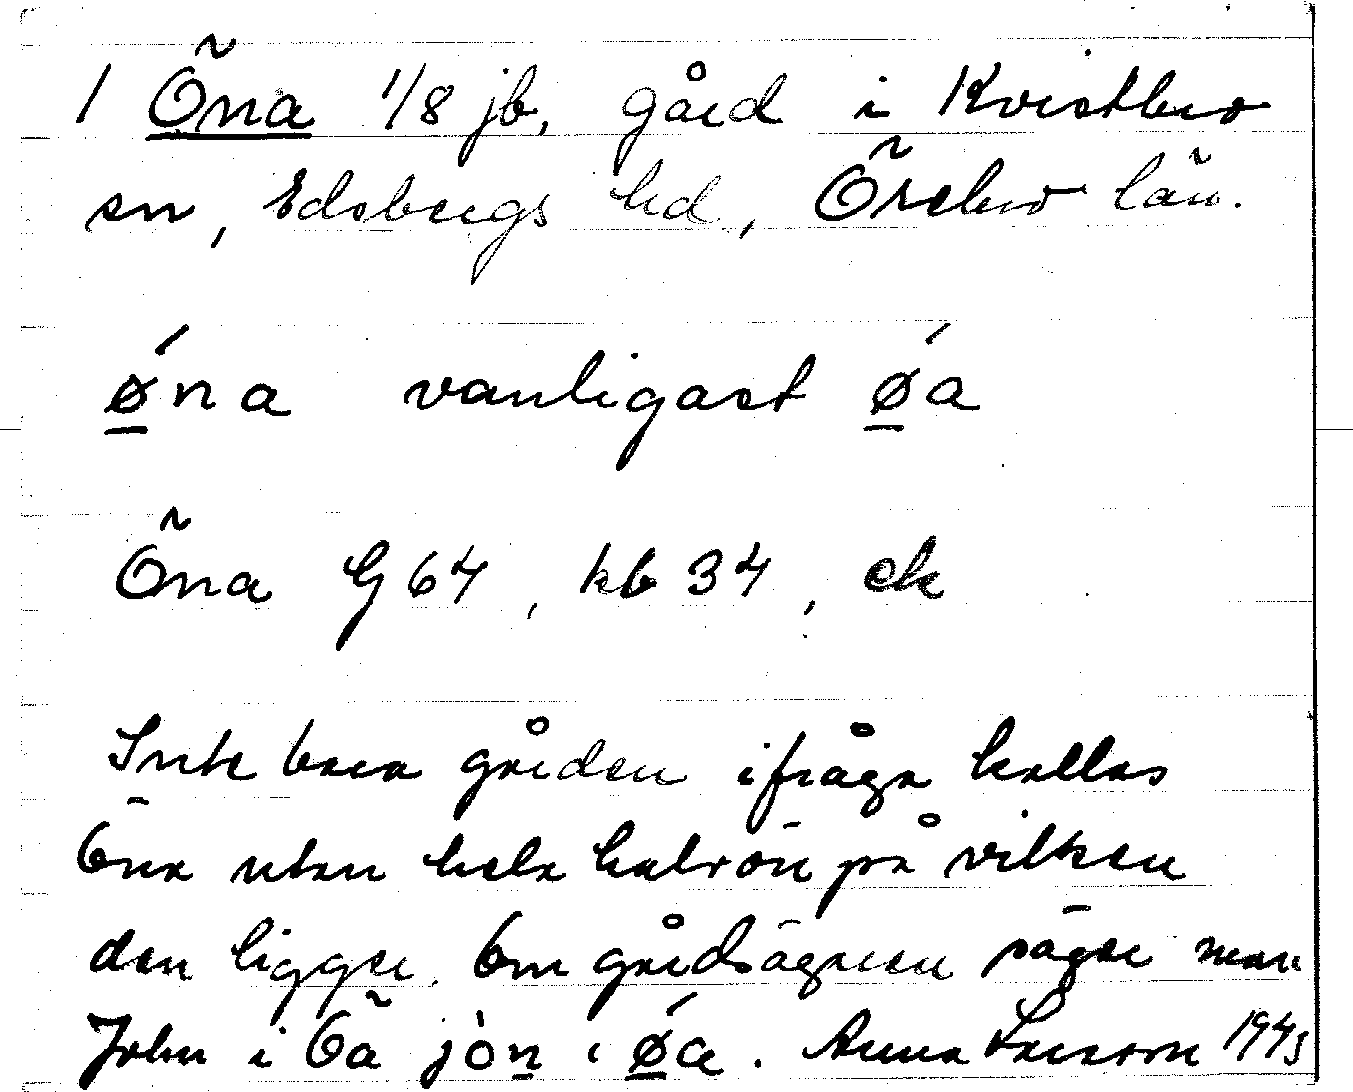 1 Öna 1/8 jb, gård i Kvistbro
sn, Edsbergs hd, Örebro län.
ǿna vanligast ǿa
Öna G 64, kb 34, ek
Inte bara gården ifråga kallas
Öna utan hela halvön på vilken
den ligger. Om gårdsägaren säger man
John i Öa jòn i ǿa. Anna Larsson 1943